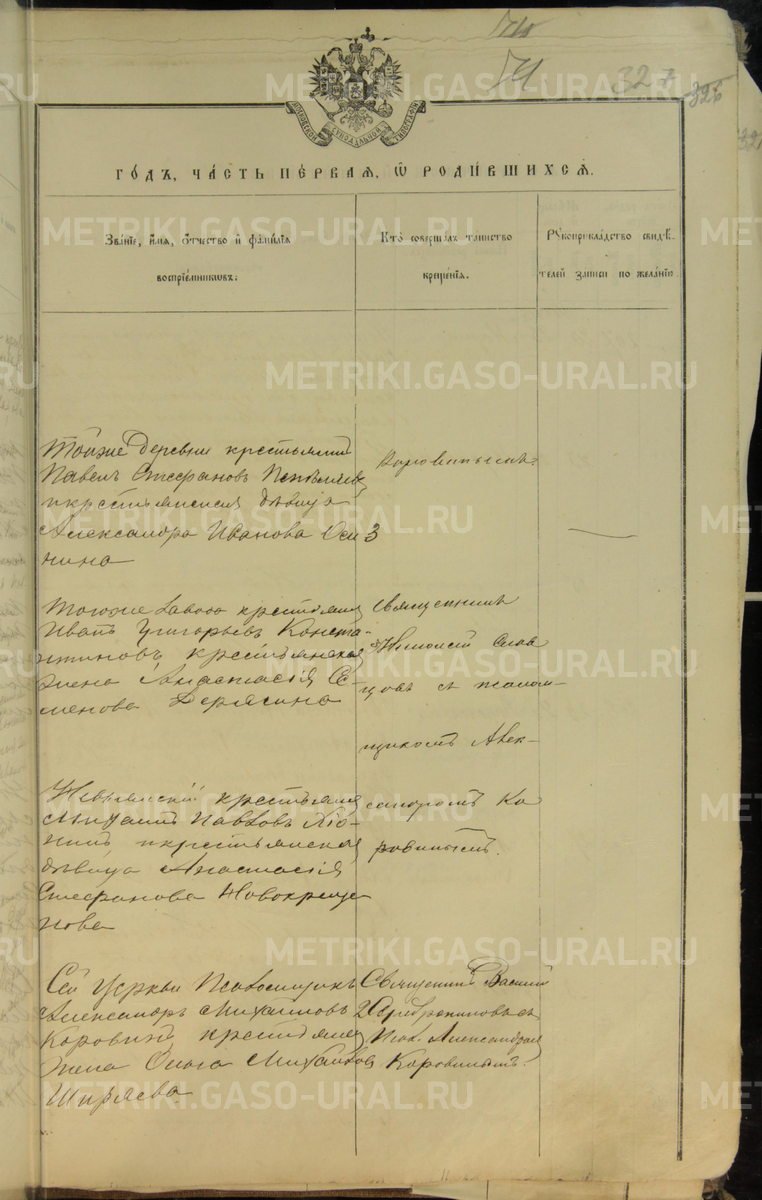 74
327
326
МОСКОВСКОЙ СѴНОДАЛЬНОЙ ТИПОГРАФІИ
METRIKI.GASO-URAL.RU
ГОДЪ, ЧАСТЬ ПЕРВАЯ, Ѡ РОДИВШИХСЯ.
Званіе, имя, отчество и фамилія
воспріемниковъ:
Кто совершалъ таинство
крещенія.
Рукоприкладство свидѣ-
телей записи по желанію.
Тойже деревни крестьянинъ
Павелъ Стефановъ
и крестьянская дѣвица
Александра Иванова Оси
нина
Коровинымъ.
3
Тогоже крестьянинъ
Иванъ Григорьевъ Конста-
нтиновъ, крестьянская
жена Анастасія Се-
менова Дерясина
Священникъ
Николай Слав
цовъ съ псалом-
щикомъ Алек-
сандромъ Ко
ровинымъ.
Невьянскій крестьянинъ
Михаилъ Павловъ
и крестьянская
дѣвица Анастасія
Стефанова Новокреще
нова
Сей Церкви Псаломщикъ
Александръ Михайловъ
Коровинъ, крестьянская
жена Ольга Михайлова
Ширяева
Священникъ Василій
Серебренниковъ съ
Псал. Александромъ
Коровинымъ.